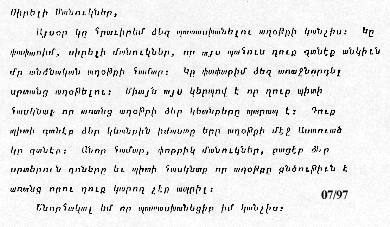 Սիրելի Մանուկներ,
Այսօր կը հրաւիրեմ ձեզ պատասխանելու աղօթքի կանչիս: Կը
փափաքիմ, սիրելի մանուկներ, որ այս պահուս դուք գտնէք անկիւն
մը անձնական աղօթքի համար: Կը փափաքիմ ձեզ առաջնորդել
սրտանց աղօթելու: Միայն այս կերպով է որ դուք պիտի
հասկնաք որ առանց աղօթքի ձեր կեանքերը պարապ է: Դուք
պիտի գտնէք ձեր կեանքին իմաստը երբ աղօթքի մէջ Աստուած
կը գտնէք: Անոր համար, փոքրիկ մանուկներ, բացէք ձեր
սրտերուն դռները եւ պիտի հասկնաք որ աղօթքը ցնծութիւն է
առանց որու դուք կարող չէք ապրիլ:
07/97
Շնորհակալ եմ որ պատասխանեցիք իմ կանչիս: